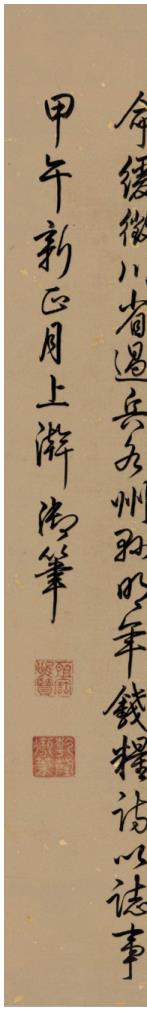 命緩徵川省過兵各州縣明年錢糧詩以誌事
甲午新正月上澣御筆
乾隆御筆